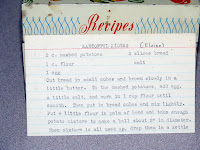 Recipes
(Elaine)
2 c. mashed potatoes 4 slices bread
1 c. flour salt
1 egg
Cut bread in small cubes and brown slowly in a
little butter. To the mashed potatoes, add egg,
a little salt, and work in 1 cup flour until
smooth. Then put in bread cubes and mix lightly.
Put a little flour in palm of hand and take enough
potato mixture to make a ball about in diameter.
When mixture is all used up, drop them in a kettle